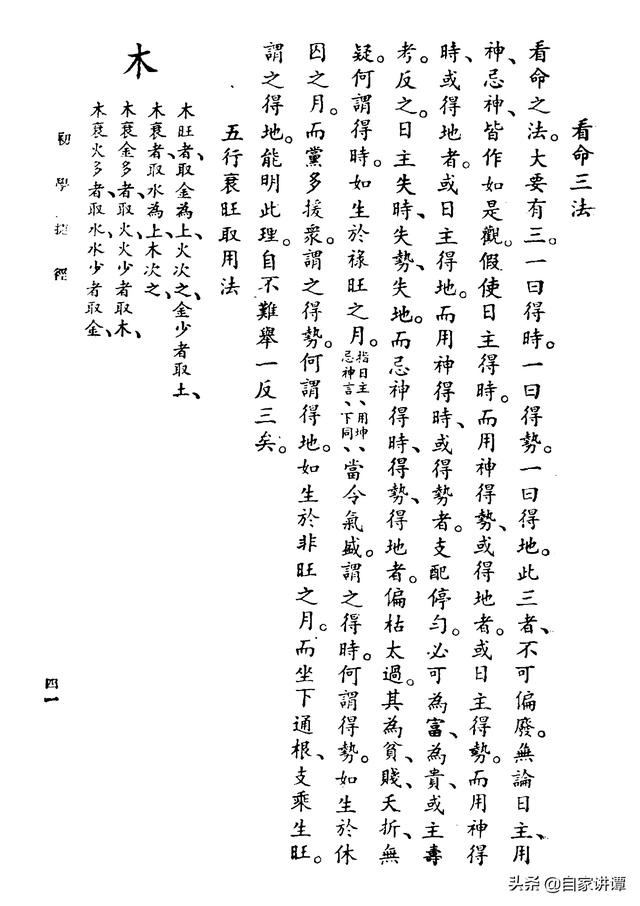 看命三法
看命之法。大要有三。一曰得時。一曰得勢。一曰得地。此三者、不可偏廢。無論日主、用
神、忌神、皆作如是觀。假使日主得時。而用神得勢、或得地者。或日主得勢。而用神得
時、或得地者。或日主得地。而用神得時、或得勢者。支配停勻。必可為富、為貴、或主壽
考。反之。日主失時、失勢、失地。而忌神得時、得勢、得地者。偏枯太過。其為貧、賤、夭折、無
疑。何謂得時。如生於祿旺之月。指日主、用坤忌神言、下同、當令氣盛。謂之得時。何謂得勢。如生於休
囚之月。而黨多援衆。謂之得勢。何謂得地。如生於非旺之月。而坐下通根、支乘生旺。
謂之得地。能明此理。自不難舉一反三矣。
五行衰旺取用法
木旺者、取金為上、火次之、金少者取土、
木衰者、取水為上、木次之、
木衰金多者、取火、火少者取木、
木衰火多者、取水、水少者取金、
木
初學捷徑
四一
头条 @自家讲谭